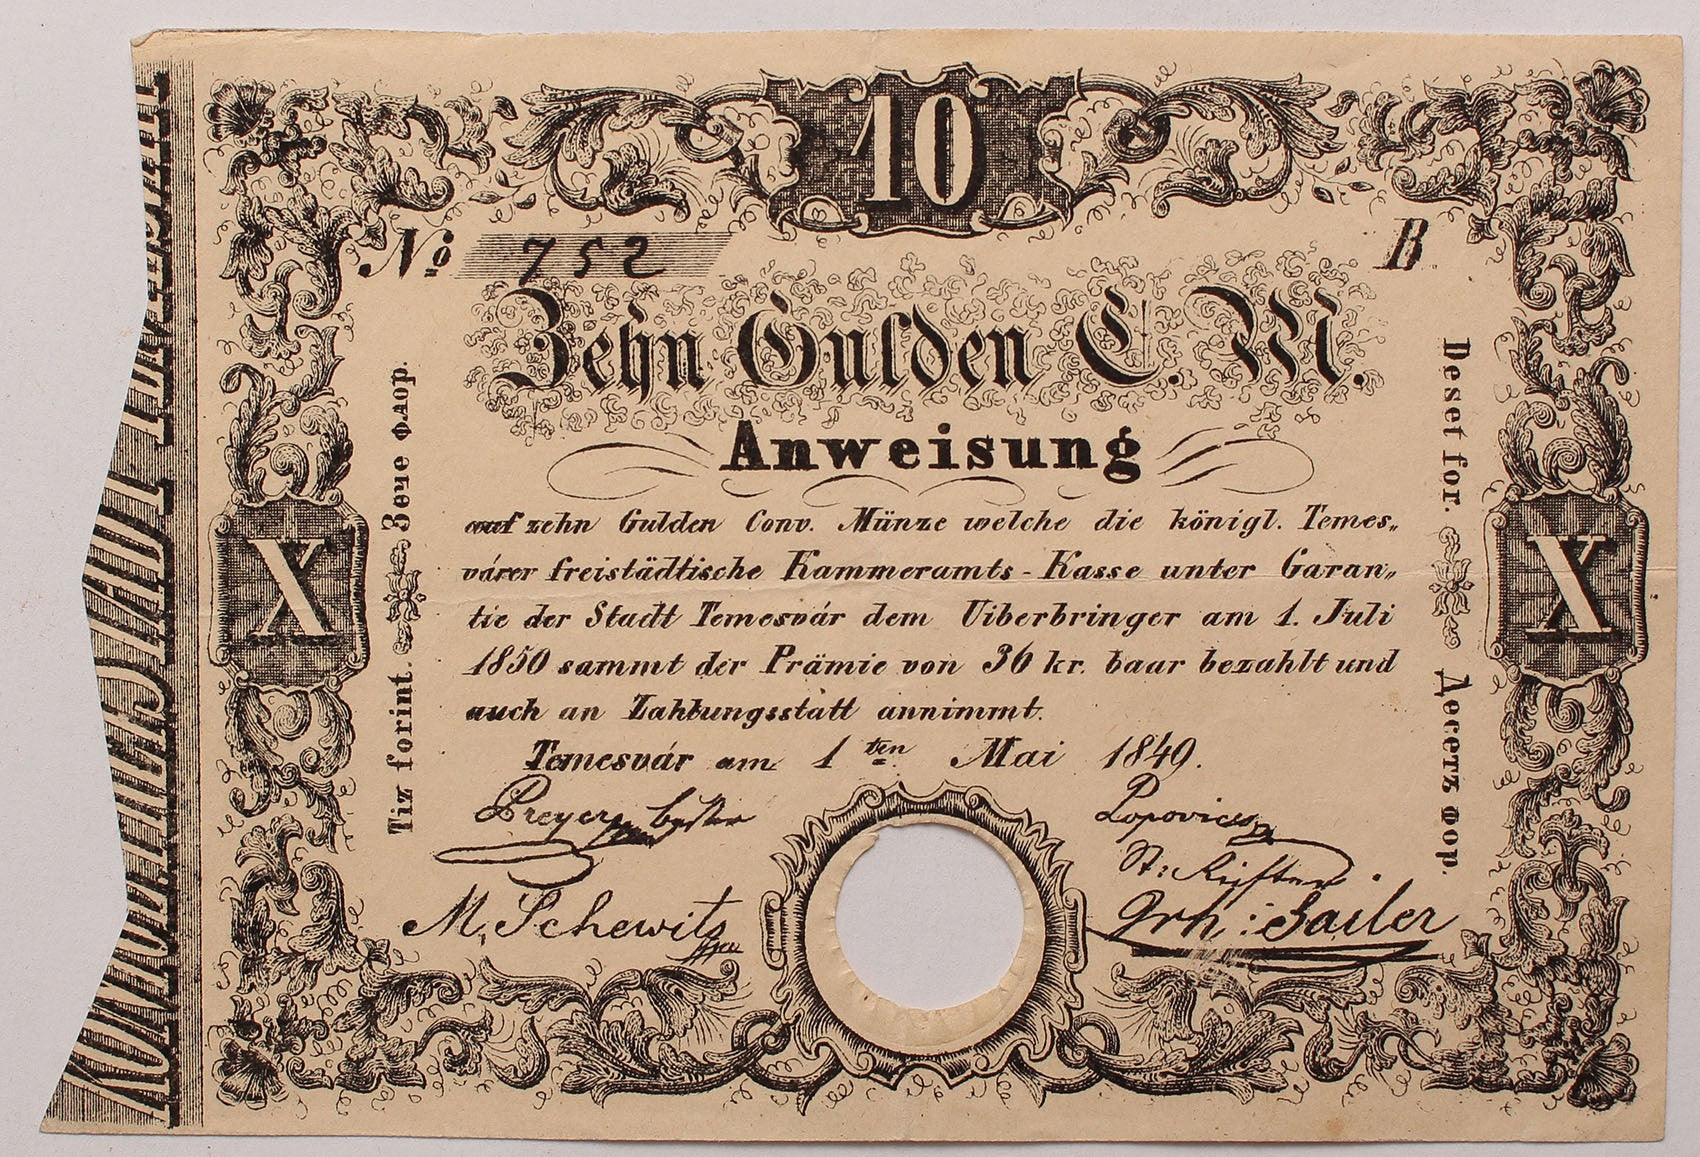 10
No 752 B
Zehn Gulden C. M.
Anweisung
auf zehn Gulden Conv. Münze welche die königl. Temes„
várer freistädtische Kammeramts-Kasse unter Garan„
tie der Stadt Temesvár dem Uiberbringer am 1. Juli
1850 sammt der Prämie von 36 kr. baar bezahlt und
auch an Zahlungsstatt annimmt.
Temesvár am 1ten Mai 1849.
Preyer
Popovics
M. Schewitz
Sailer
X
X
Tiz forint.
Зече флор.
Deset for.